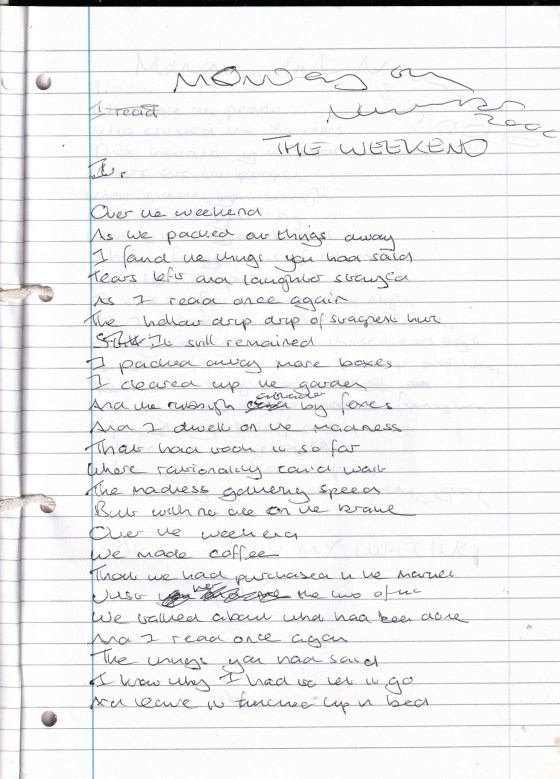 Monday on
I read
2000
THE WEEKEND
Over the weekend
As we packed our things away
I found the things you had said
Tears left and laughter stayed
As I read once again
The hollow drip drip of stagnent hurt
It still remained
I packed away more boxes
I cleared up the garden
And the rubbish by foxes
And I dwelt on the madness
That had took it so far
Where rationality could wait
The madness gathering speed
But with no one on the brake
Over the weekend
We made coffee
That we had purchased in the market
Just the two of us
We talked about what had been done
And I read once again
The things you had said
I know why I had to let it go
And leave it tucked up in bed